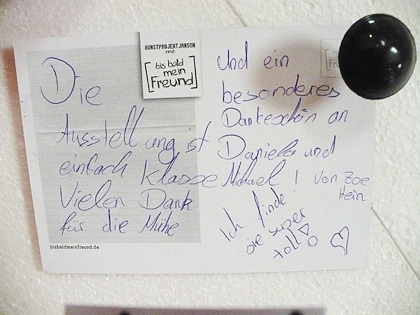 KUNSTPROJEKT JANSON
zeigt
[bis bald
mein
Freund]
Die
Ausstellung ist
einfach klasse
Vielen Dank
für die Mühe
bisbaldmeinfreund.de
und ein
besonderes
Dankeschön an
Daniela und
Michael! von Zoe
Hein
Ich finde
sie super
toll!